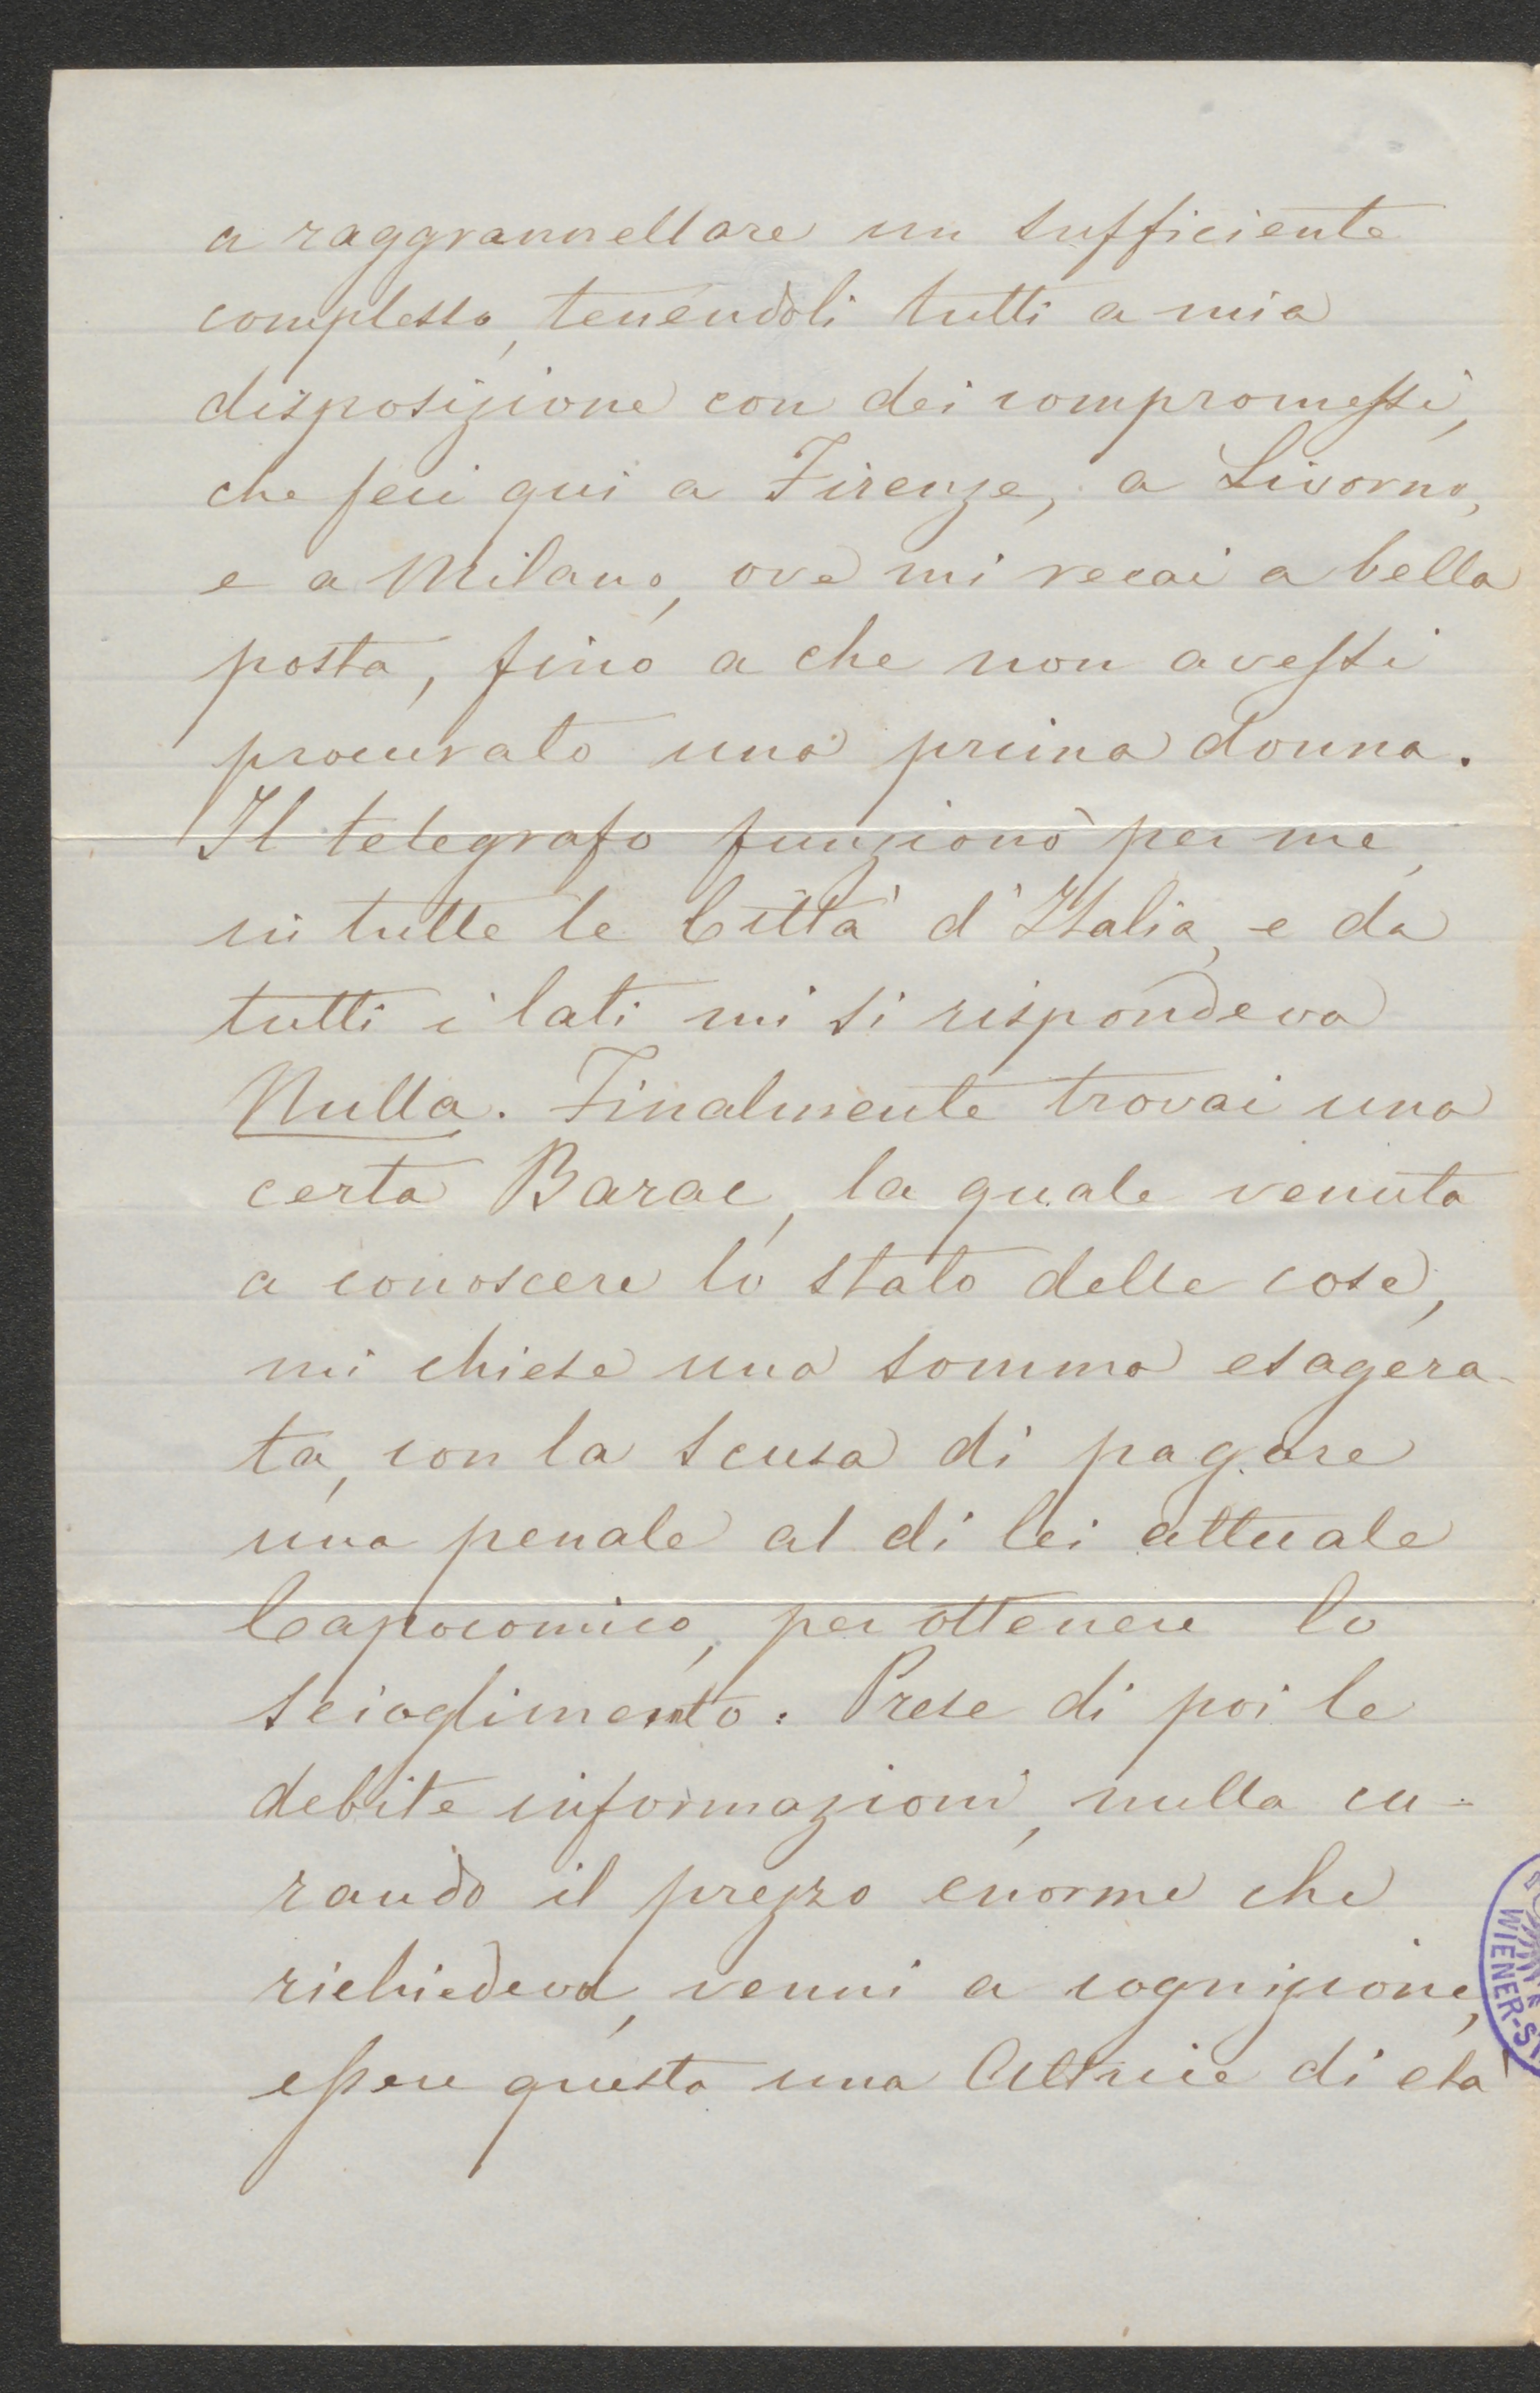 a raggrannellare un sufficiente
complesso, tenendoli tutti a mia
disposizione con dei compromessi,
che feci qui a Firenze, a Livorno,
e a Milano, ove mi recai a bella
posta, fino a che non avessi
procurato una prima donna.
Il telegrafo funzionò per me,
in tutte le Città d'Italia, e da
tutti i lati mi si rispondeva
Nulla. Finalmente trovai una
certa Barac, la quale venuta
a conoscere lo stato delle cose,
mi chiese una somma esagera-
ta, con la scusa di pagare
una penale al di lei attuale
Capocomico, per ottenere lo
scioglimento. Prese di poi le
debite informazioni, nulla cu-
rando il prezzo enorme che
richiedeva, venni a cognizione,
essere questa una Attrice di età
WIENER-S